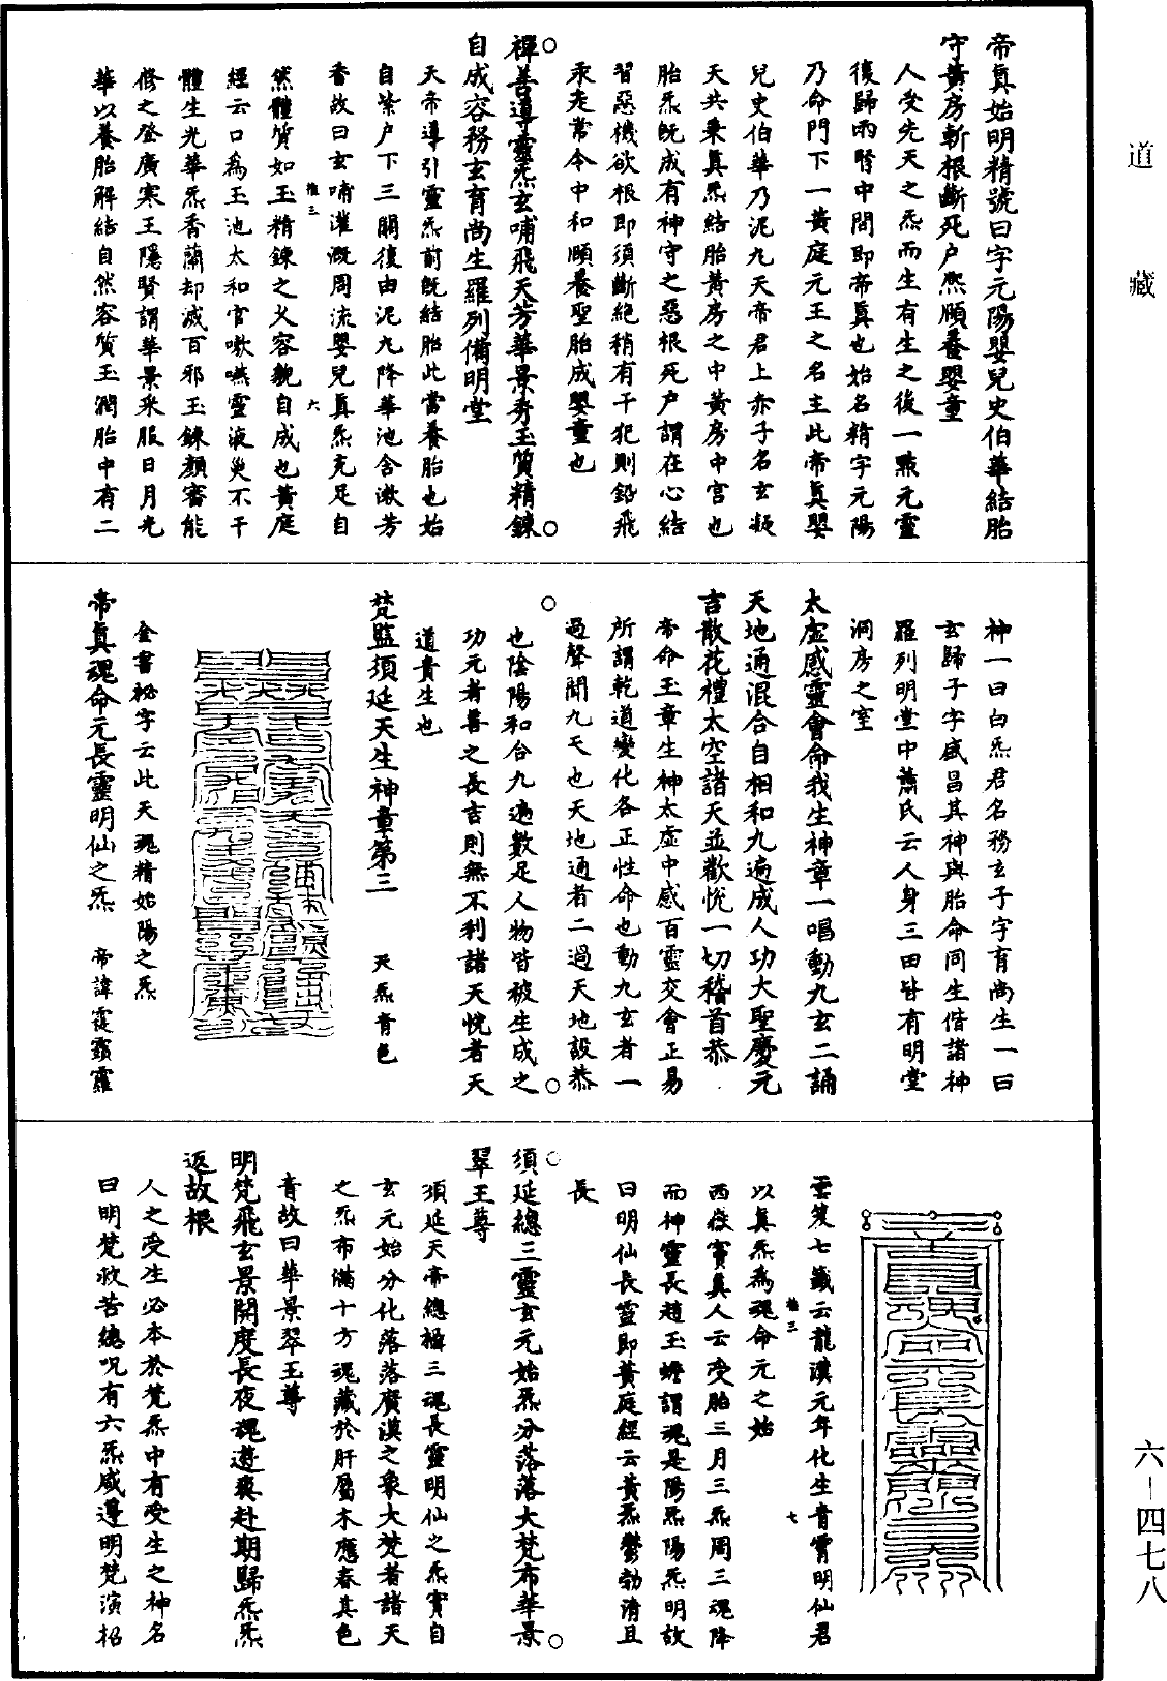 道藏
帝真始明精號曰字元陽嬰兒史伯華結胎
守黃房斬根斷死户熙頤養嬰童
人受先天之炁而生有生之後一點元靈
復歸兩腎中間即帝真也始名精字元陽
乃命門下一黃庭元王之名主此帝真嬰
兒史伯華乃泥九天帝君上赤子名玄凝
天共乘真炁結胎黃房之中黃房中宮也
胎炁既成有神守之惡根死户謂在心結
習惡機欲根即須斷絕稍有干犯則鉛飛
汞走常令中和頤養聖胎成嬰童也
禪善導靈炁玄哺飛天芳華景秀玉質精鍊
自成容務玄育尚生羅列備明堂
天帝導引靈炁前既結胎此當養胎也始
自紫户下三關復由泥九降華池含漱芳
香故曰玄哺灌溉周流嬰兒真炁充足自
推三 六
然體質如玉精鍊之火容貌自成也黃庭
經云口為玉池太和官嗽嚥靈液災不干
體生光華炁香蘭却滅百邪玉鍊顏審能
修之登廣寒王隱賢謂華景采服日月光
華以養胎解結自然容質玉潤胎中有二
神一曰白炁君名務玄子字育尚生一曰
玄歸子字盛昌其神與胎命同生偕諸神
羅列明堂中蕭氏云人身三田皆有明堂
洞房之室
太虛感靈會命我生神章一唱動九玄二誦
天地通混合自相和九遍成人功大聖慶元
吉散花禮太空諸天並歡悅一切稽首恭
帝命玉章生神太虛中感百靈交會正易
所謂乾道變化各正性命也動九玄者一
過聲聞九天也天地通者二過天地設恭
也陰陽和合九遍數足人物皆被生成之
功元者善之長吉則無不利諸天悅者天
道貴生也
梵監須延天生神章第三 天炁青色
金書祕字云此天魂精始陽之炁
帝真魂命元長靈明仙之炁 帝諱
雲笈七籤云龍漢元年化生青霄明仙君
以真炁為魂命元之始
推三 七
西嶽竇真人云受胎三月三炁周三魂降
而神靈長趙玉蟾謂魂是陽炁陽炁明故
曰明仙長靈即黃庭經云黃炁鬱勃清且
長
須延總三靈玄元始炁分落落大梵布華景
翠玉尊
須延天帝總攝三魂長靈明仙之炁實自
玄元始分化落落廣漠之象大梵者諸天
之炁布滿十方魂藏於肝屬木應春其色
青故曰華景翠玉尊
明梵飛玄景開度長夜魂遊爽赴期歸炁炁
返故根
人之受生必本於梵炁中有受生之神名
曰明梵救苦總呪有六炁咸遵明梵演招
六－四七八